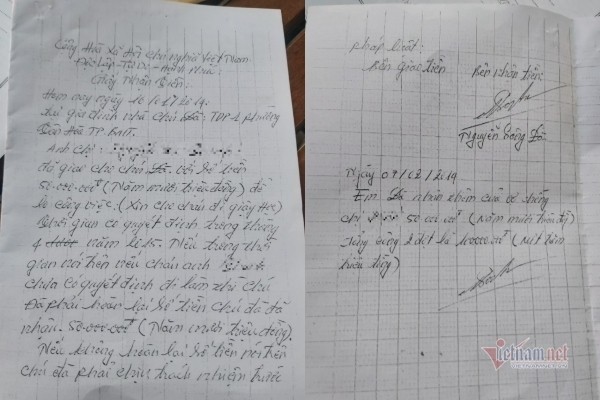 Cộng Hòa Xã Hội Chủ nghĩa Việt Nam
Độc Lập - Tự Do - Hạnh Phúc
Giấy Nhận Tiền:
Hôm nay ngày 10/1/2019.
Tại gia đình nhà chú Đà: TDP 4 phường
TP.
Anh chị:
đã giao cho chú Đà với số tiền
50.000.000đ (Năm mươi triệu đồng) để
lo công việc. (Xin cho cháu đi dạy Học)
thời gian có quyết định trong tháng
4 năm Nếu trong thời
gian nói trên nếu cháu anh
chưa có quyết định đi làm thì chú
Đà phải hoàn lại số tiền chú đã
nhận. 50.000.000đ (Năm mươi triệu đồng).
Nếu không hoàn lại số tiền nói trên
chú đà phải chịu trách nhiệm trước
pháp luật:
Bên giao tiền Bên nhận tiền
Nguyễn Đà
Ngày 09/02/2019
Em Đà nhận thêm của vợ chồng
chị 50.000.000đ (Năm mươi triệu đ)
Tổng cộng 2 đợt là 100.000.000đ (Một trăm
triệu đồng)
Vietnamnet
VIETNAMNET.VN